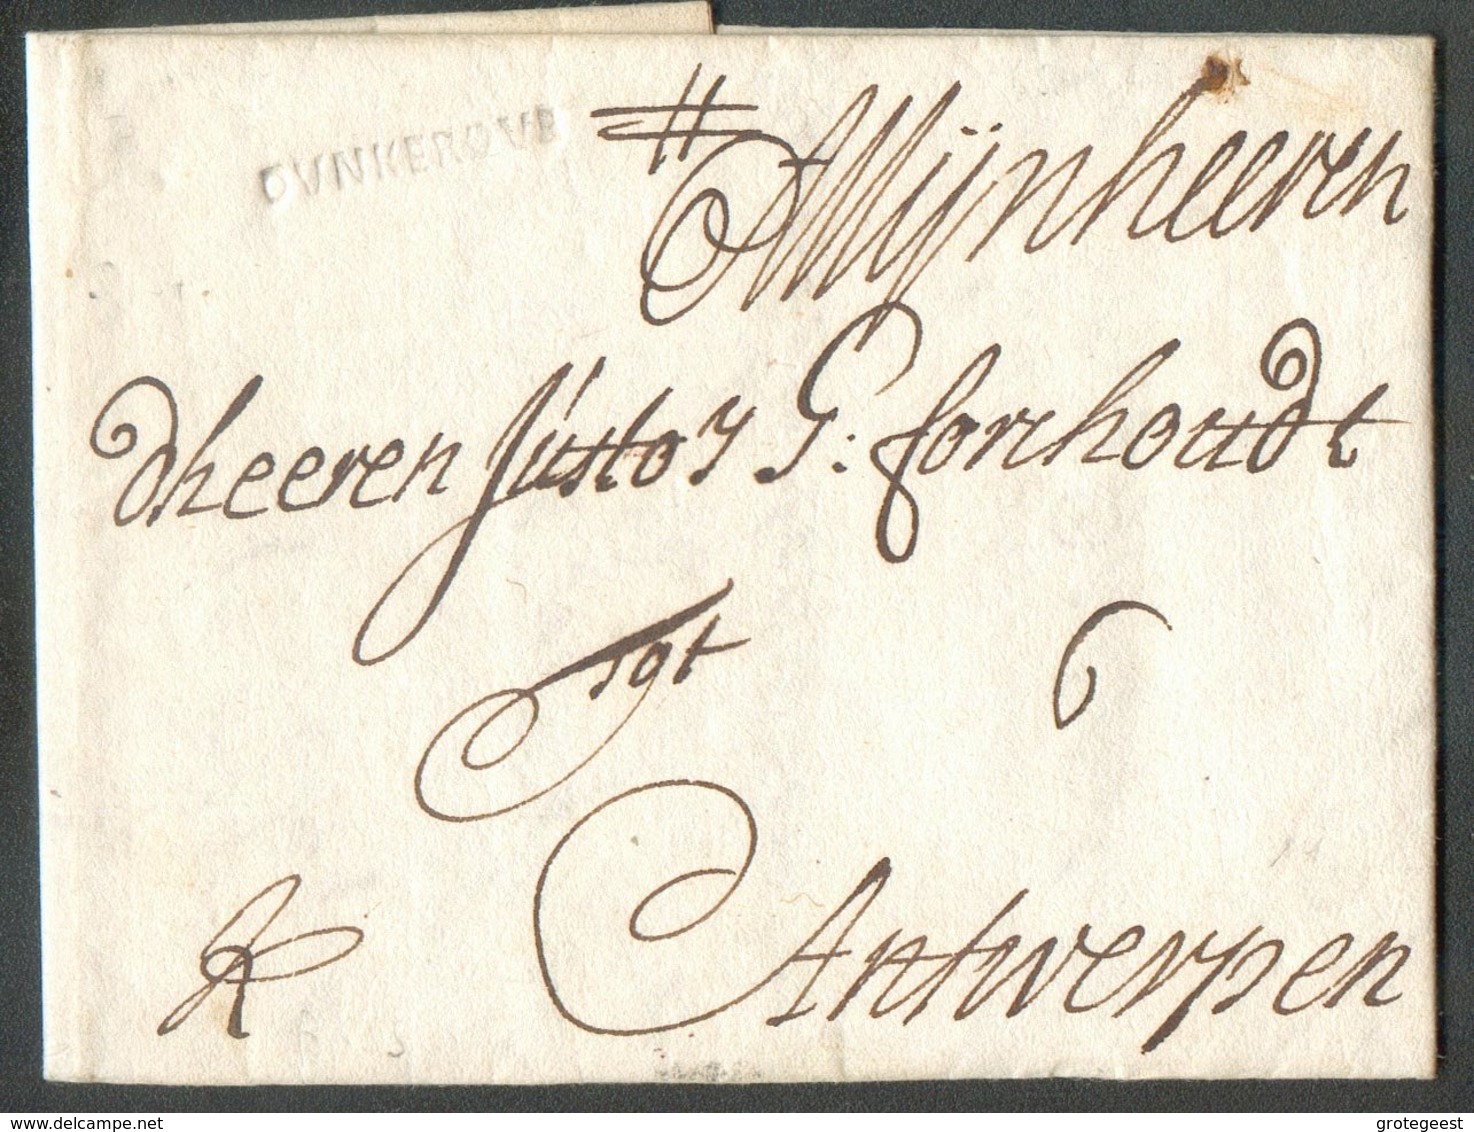 DVNKERQVE
Mijnheeren
dheeren Justo y G: forchoudt
6
A Antwerpen
delcampe.net
grotegeest